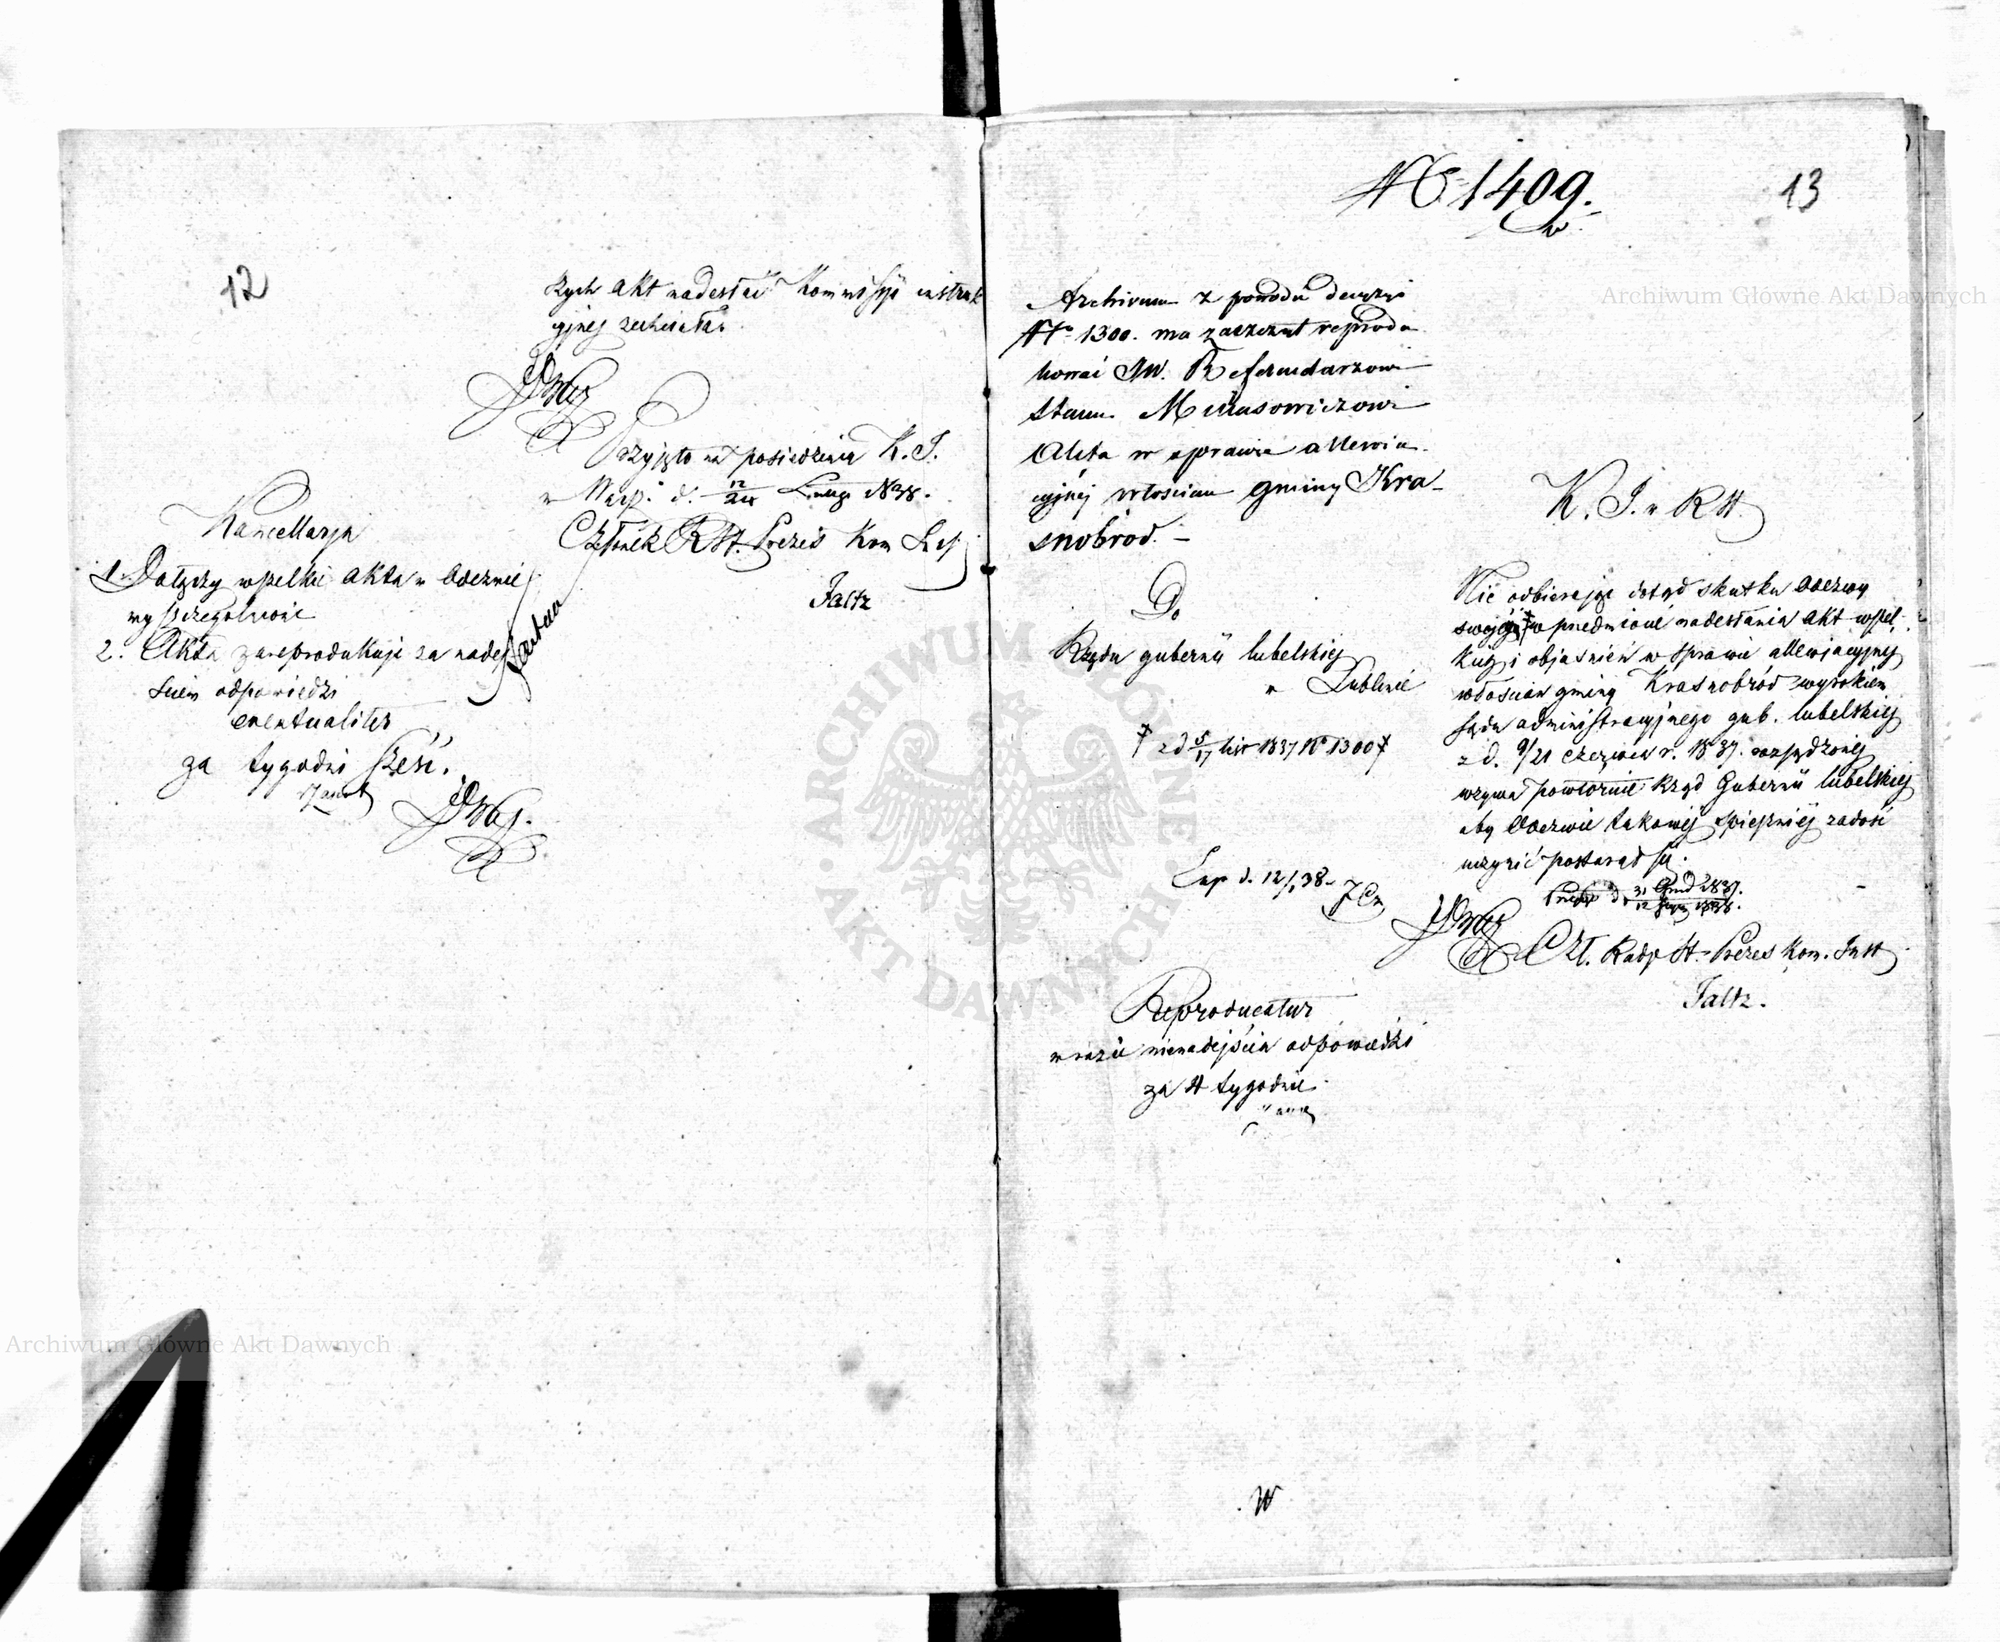 12
kych akt nadesłać Kommissyi instruk
cyjnej zechciała.
Przyjęto na posiedzeniu K. I.
w Warsz. d. 12/24 Lutego 1838.
Członek RSt. Prezes Kom Inst
Faltz
Kancellarja
1. Dołączy wszelkie akta w odezwie
wyszczególnione
2. Akta zareprodukuje za nadej
ściem odpowiedzi
eventualiter
za tygodni sześć.
No 1409.
13
Archivum z powodu decyzyi
No 1300. ma zaczem reprodu
kować JW. Referendarzowi
Stanu
Akta w sprawie allewia
cyjnej włościan gminy Kra-
snobrod. -
Do
Rządu gubernii lubelskiej
w Lublinie
z d 5/17 1837 No 1300
Exp d. 12/1 38.
Reproducatur
w razie nienadejścia odpowiedzi
za 4 tygodnie.
K. I. w RSt.
Nie odbierając dotąd skutku odezwy
swojej w przedmiocie nadesłania akt wszel-
kich i objaśnień w sprawie allewjacyjnej
włościan gminy Krasnobród wyrokiem
Sądu administracyjnego gub. lubelskiej
z d. 9/21 czerwca r. 1837. rozsądzonej
wzywa powtórnie Rząd Gubernii lubelskiej
aby odezwie takowej spieszniej zadość
uczynić postarał się.
d. 31 Grud 1837.
12 1838.
Czł. Rady St. Prezes Kom. Inst
Faltz.
W
Archiwum Główne Akt Dawnych
Archiwum Główne Akt Dawnych
ARCHIWUM GŁÓWNE AKT DAWNYCH